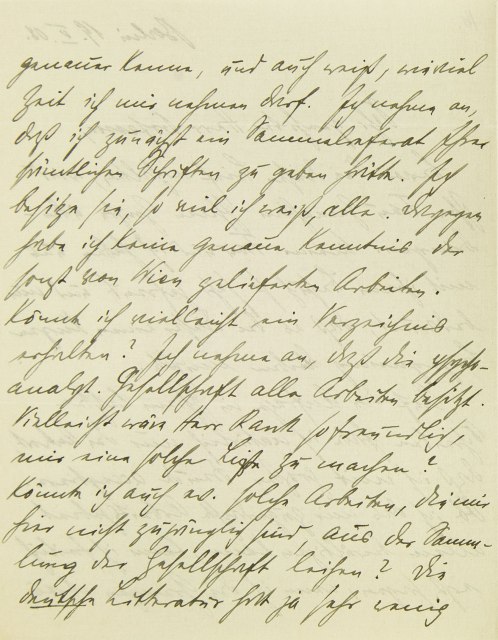 genauer kenne, und auch weiß, wieviel
Zeit ich mir nehmen darf. Ich nehme an,
daß ich zunächst ein Sammelreferat Ihrer
sämtlichen Schriften zu geben hätte. Ich
besitze sie, so viel ich weiß, alle. Dagegen
habe ich keine genaue Kenntnis der
sonst von Wien gelieferten Arbeiten.
Könnte ich vielleicht ein Verzeichnis
erhalten? Ich nehme an, daß die psych-
analyt. Gesellschaft alle Arbeiten besitzt.
Vielleicht wäre Herr Rank so freundlich,
mir eine solche Liste zu machen?
Könnte ich auch ev. solche Arbeiten, die mir
hier nicht zugänglich sind, aus der Samm-
lung der Gesellschaft leihen? Die
deutsche Litteratur hat ja sehr wenig